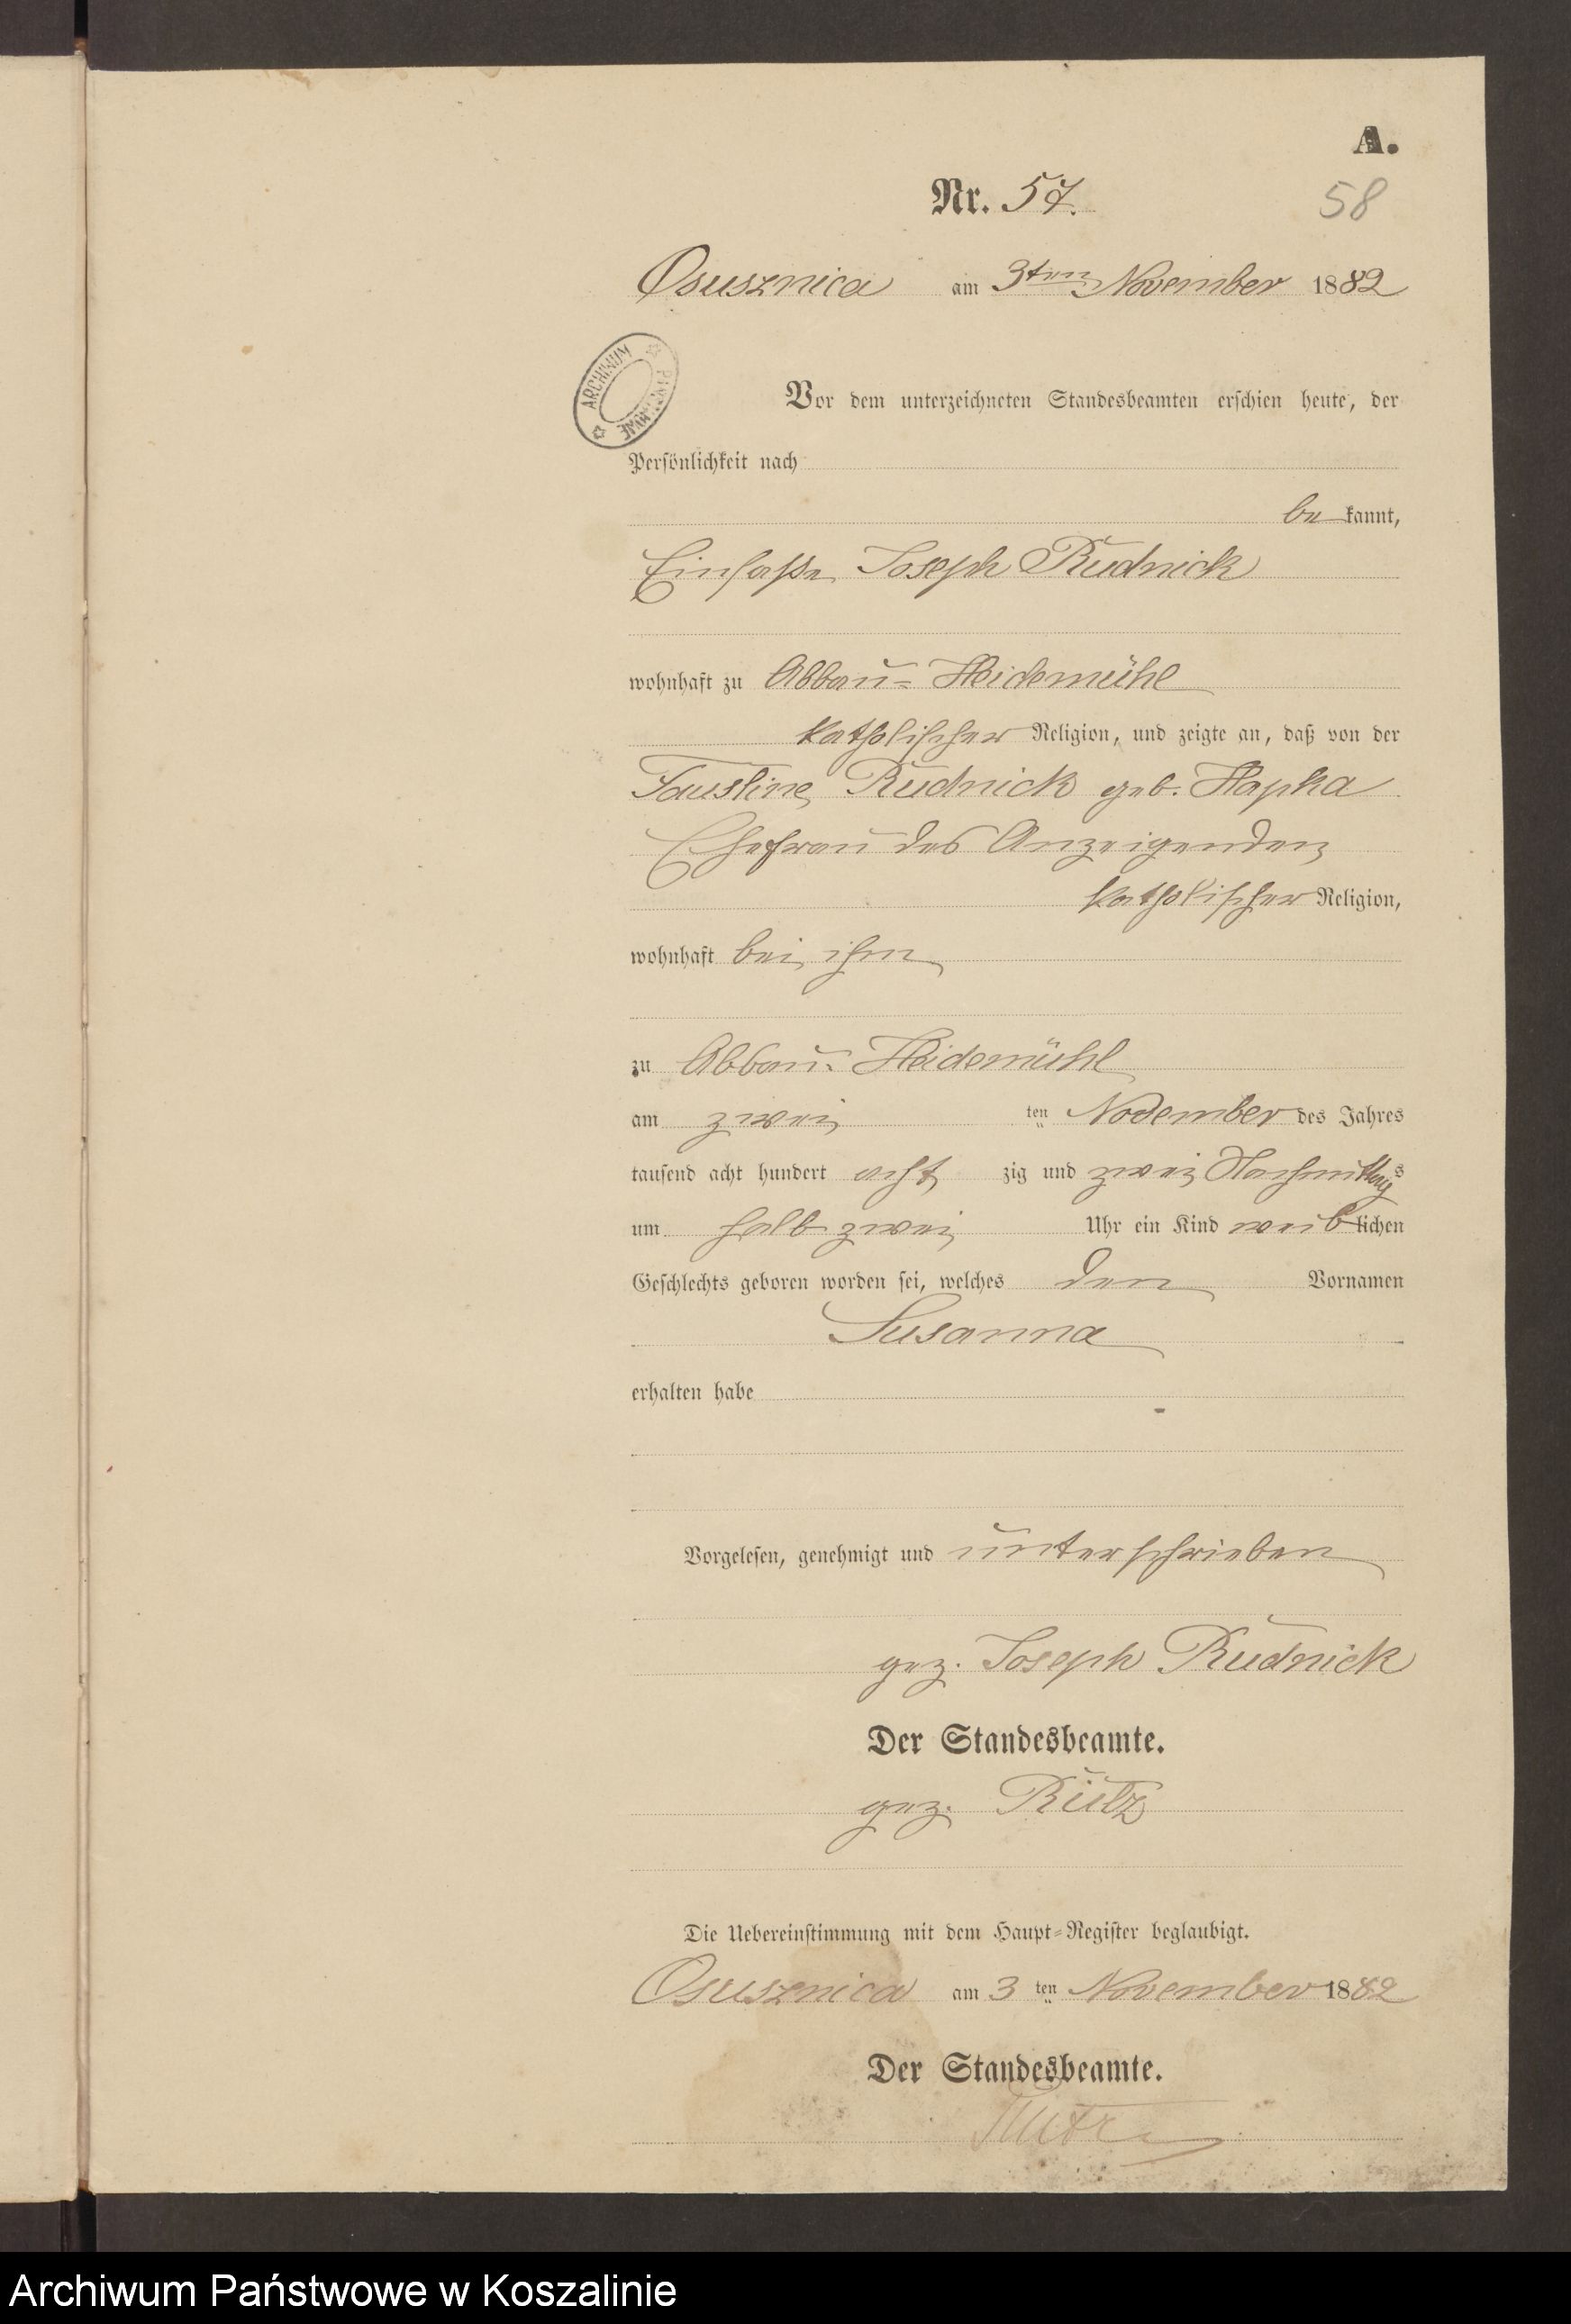 A.
Nr. 57.
58
Osusznica am 3ten November 1882
ARCHIWUM
Vor dem unterzeichneten Standesbeamten erschien heute, der
Persönlichkeit nach
be kannt,
Einsasse Joseph Rudnick
wohnhaft zu Abbau-Heidemühl
katholischer Religion, und zeigte an, daß von der
Faustine Rudnick geb. Hapka
Ehefrau des Anzeigenden
katholischer Religion,
wohnhaft bei ihm
zu Abbau-Heidemühl
am zwei ten November des Jahres
tausend acht hundert acht zig und zwei Nachmittags
um halb zwei Uhr ein Kind weiblichen
Geschlechts geboren worden sei, welches den Vornamen
Susanna
erhalten habe
Vorgelesen, genehmigt und unterschrieben
gez. Joseph Rudnick
Der Standesbeamte.
gez.
Die Uebereinstimmung mit dem Haupt-Register beglaubigt.
Osusznica am 3 ten November 1882
Der Standesbeamte.
Archiwum Państwowe w Koszalinie